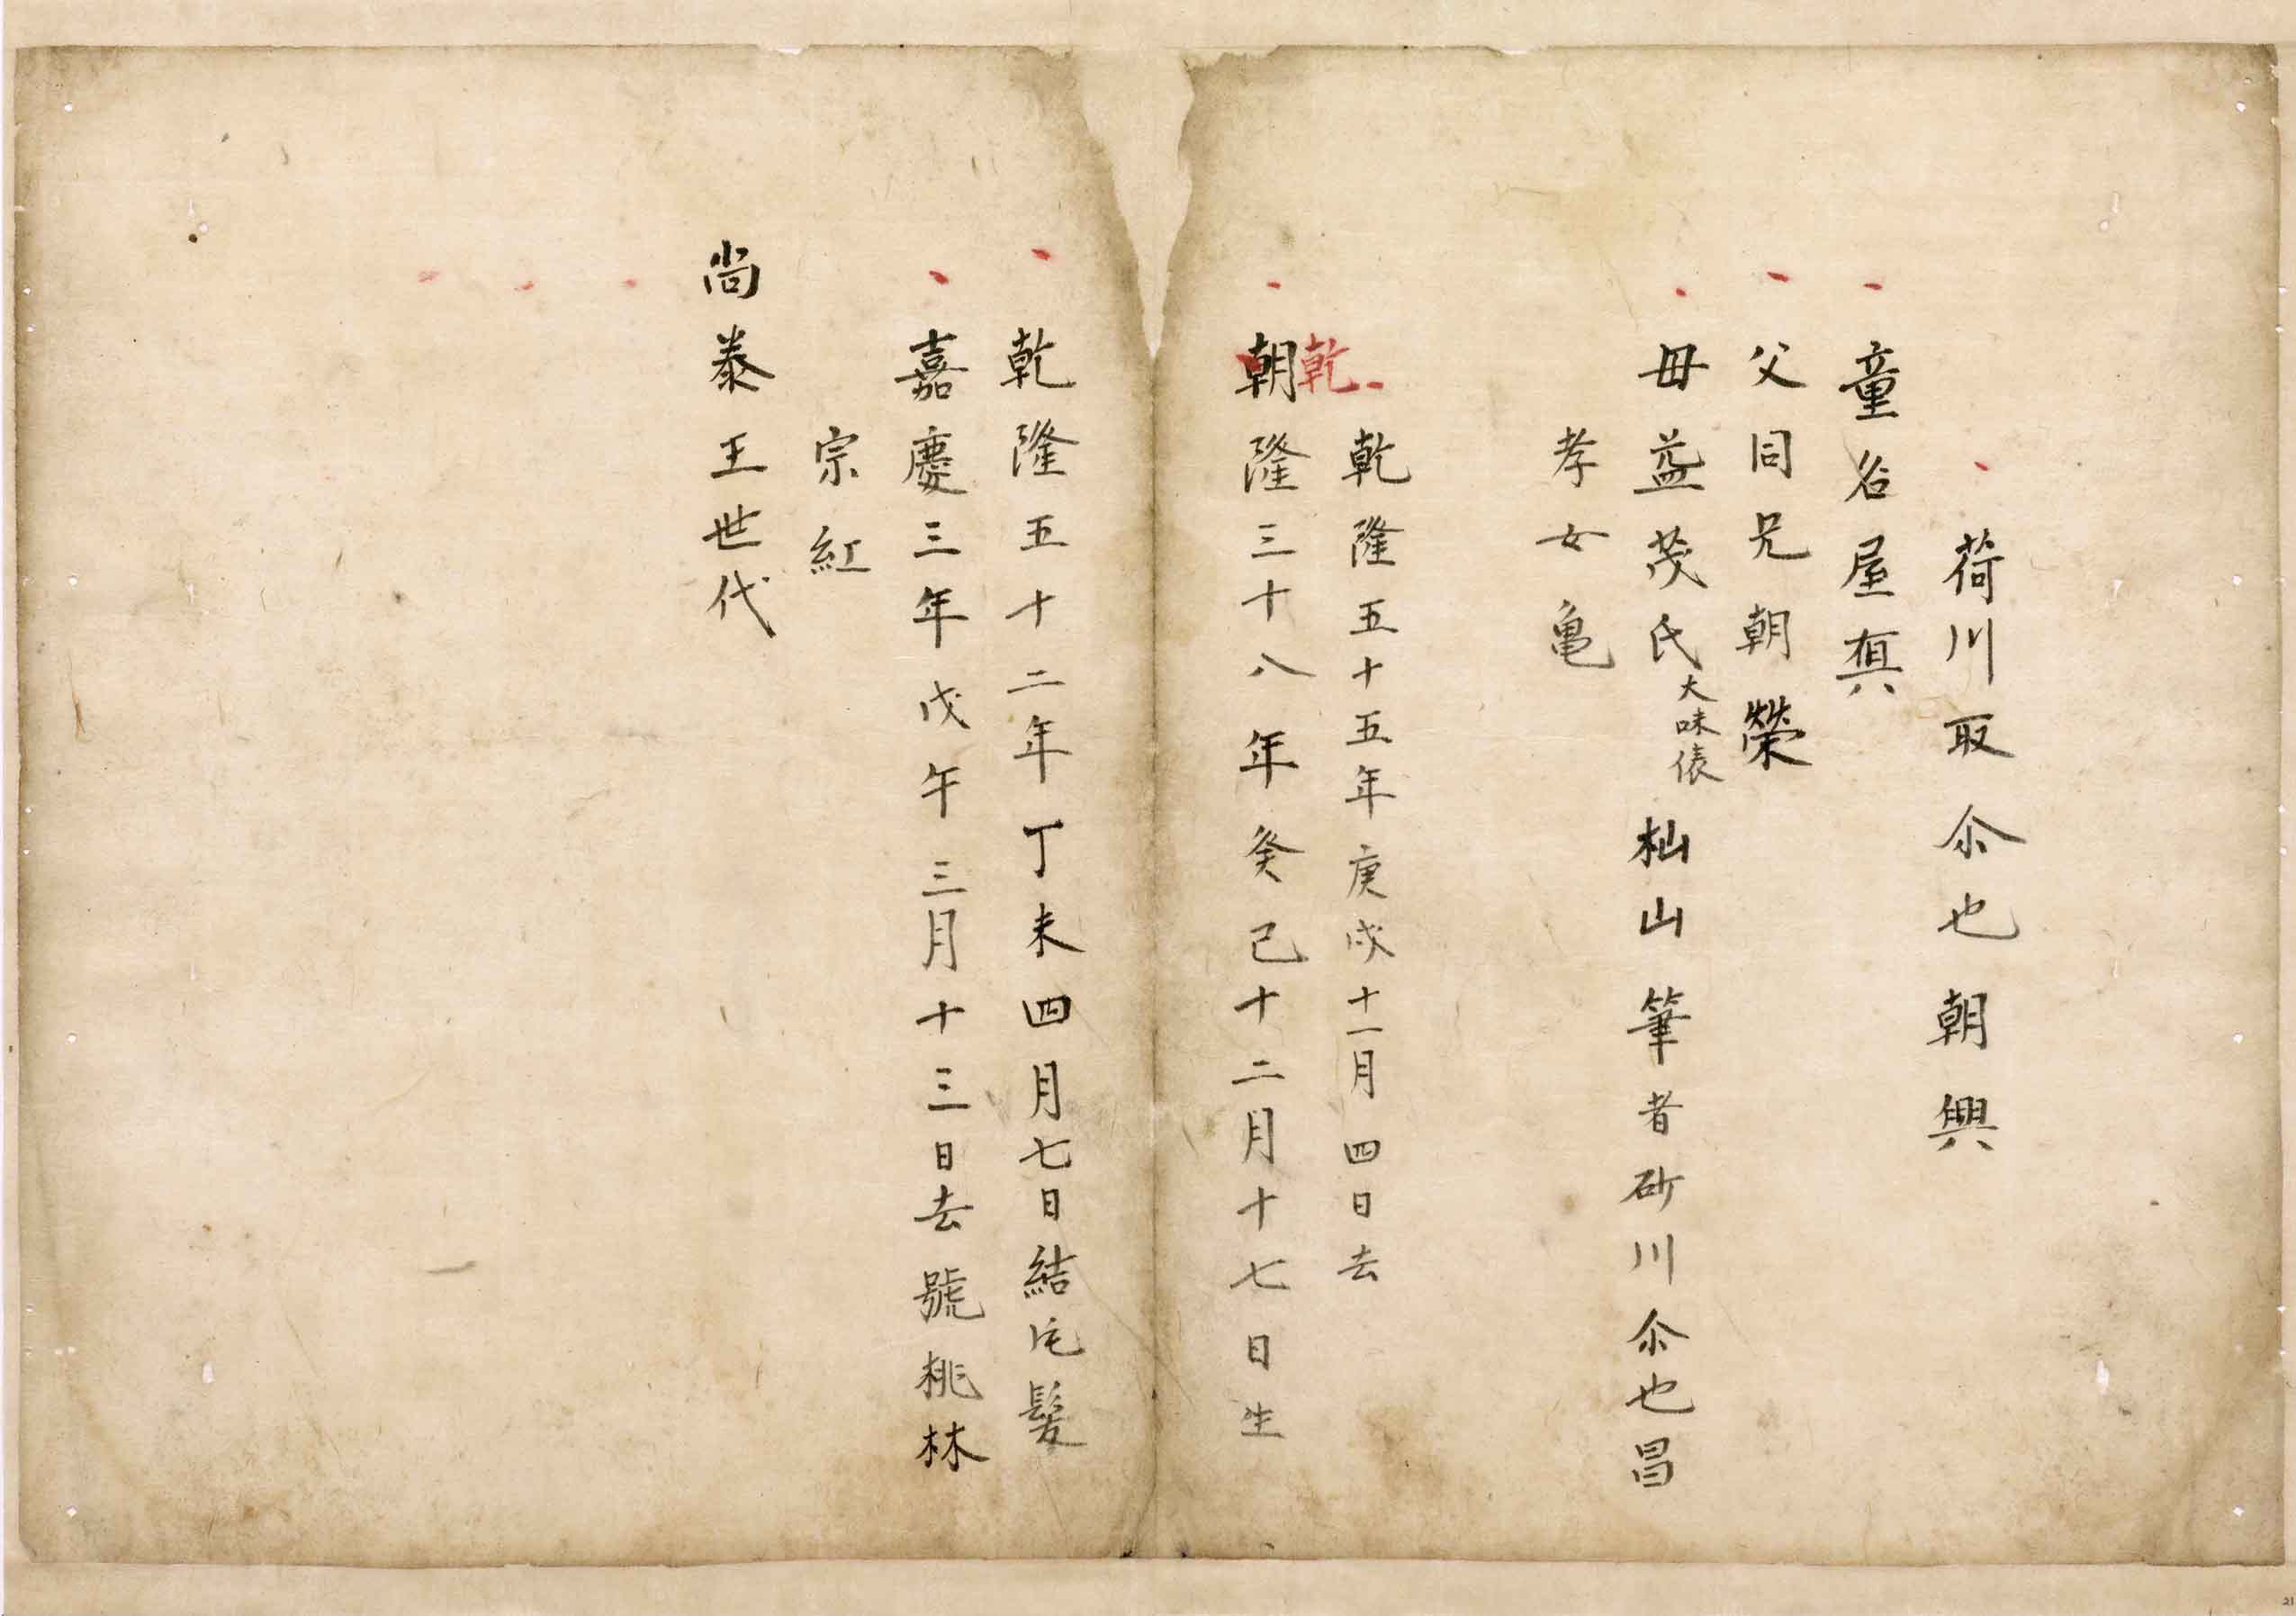 荷川取尒也朝興
童名屋真
父同兄朝榮
母益茂氏大味俵杣山筆者砂川尒也昌
孝女亀
乾隆五十五年庚戌十一月四日去
乾
朝隆三十八年癸己十二月十七日生
乾隆五十二年丁未四月七日結髮
嘉慶三年戊午三月十三日去號桃林
宗紅
尚泰王世代